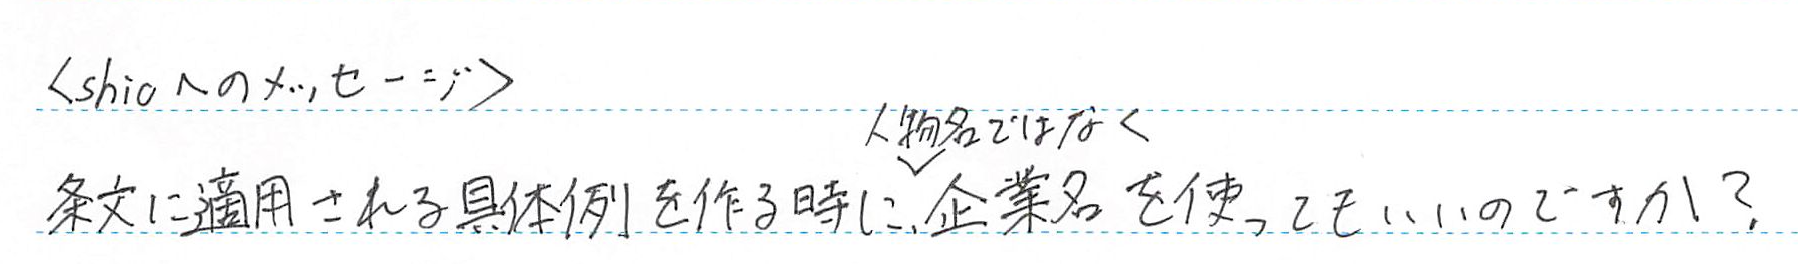 <shioへのメッセージ>
人物名ではなく
条文に適用される具体例を作る時に、企業名を使ってもいいのですか?